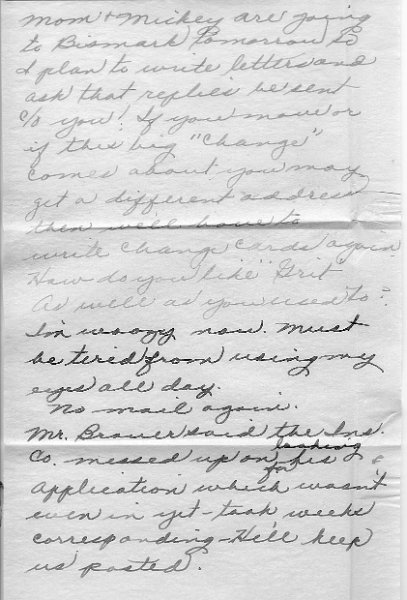 Mom + Mickey are going
to Bismark tomorrow so
I plan to write letters and
ask that replies be sent
c/o you! If you move or
if this big "change"
comes about you may
get a different address
then we'll have to
write change cards again.
How do you like "Grit"
as well as you used to?
I'm woozy now. Must
be tired from using my
eyes all day.
No mail again.
Mr. Brauer said the Ins.
Co. messed up on looking for his
application which wasn't
even in yet - took weeks
corresponding - He'll keep
us posted.